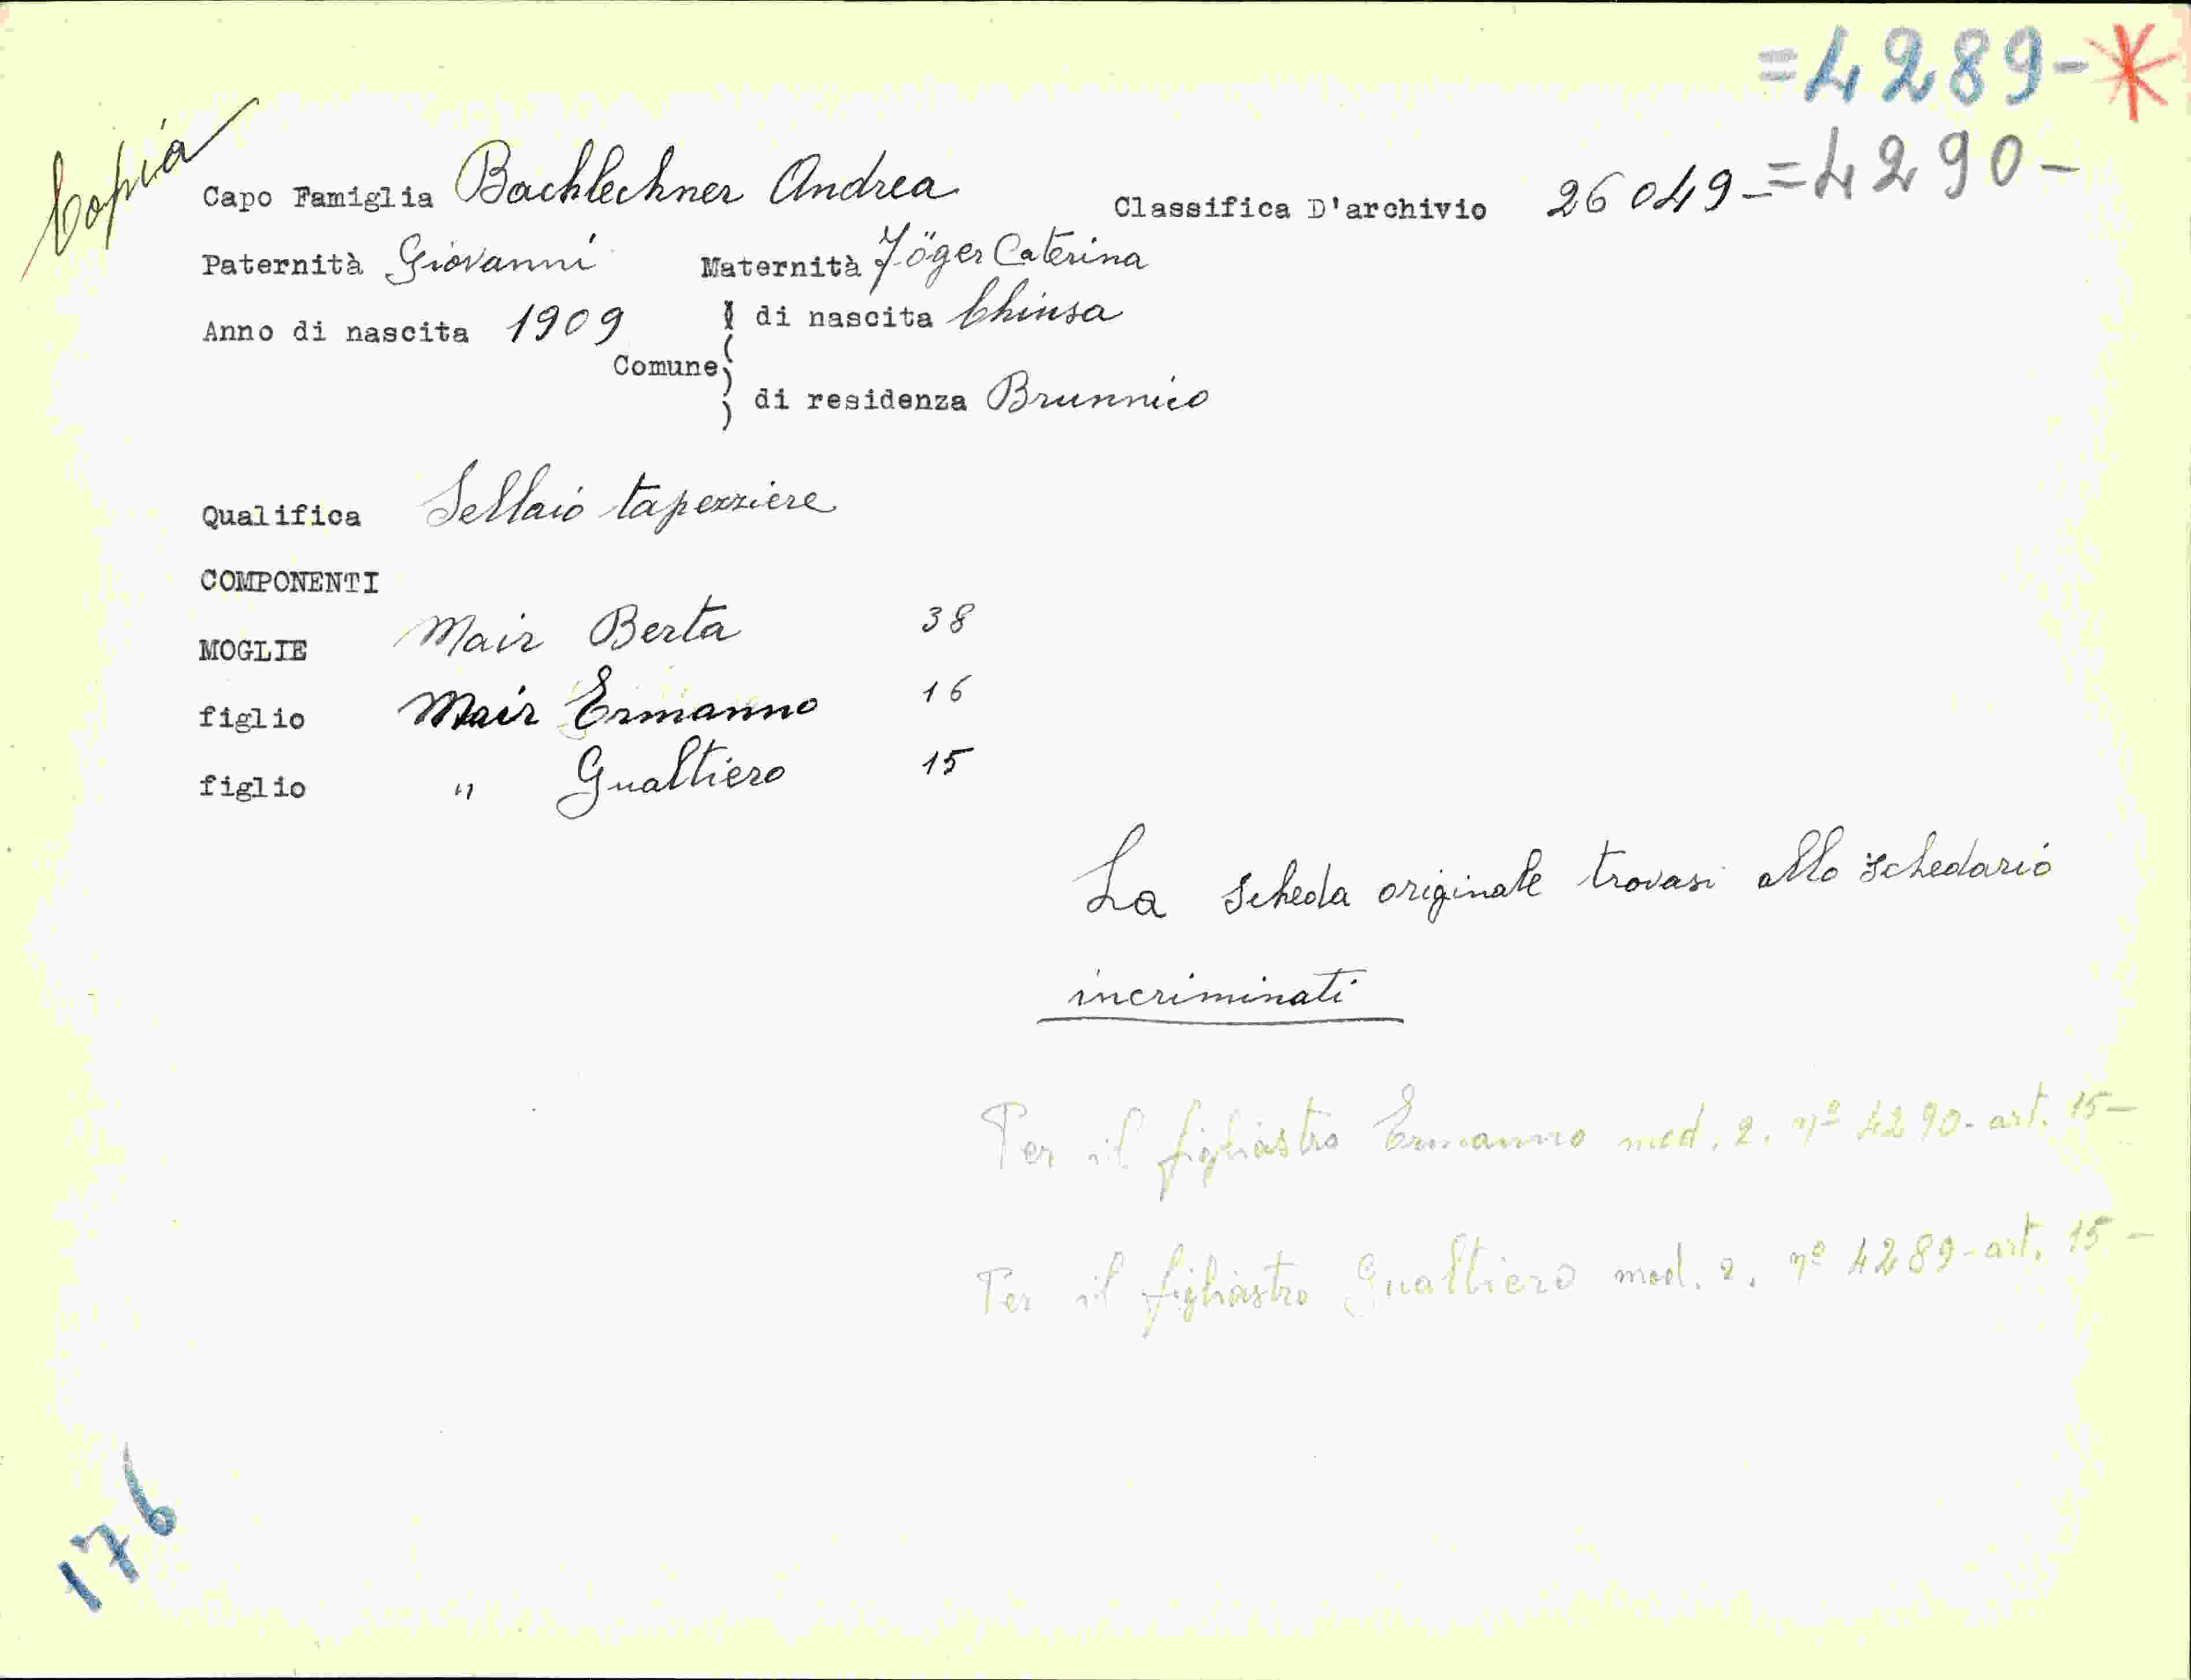 =4289-*
=4290-
Copia
Capo Famiglia Bachlechner Andrea Classifica D'archivio 26049-
Paternità Giovanni Maternità Jöger Caterina
Anno di nascita 1909 di nascita Chiusa
Comune
di residenza Brunnico
Qualifica Sellaio tapezziere
COMPONENTI
MOGLIE Mair Berta 38
figlio Mair Ermanno 16
figlio " Gualtiero 15
La scheda originale trovasi allo schedario
incriminati
Per il figliastro Ermanno mod. 2. nº 4290- art. 15-
Per il figliastro Gualtiero mod. 2. nº 4289- art. 15-
176